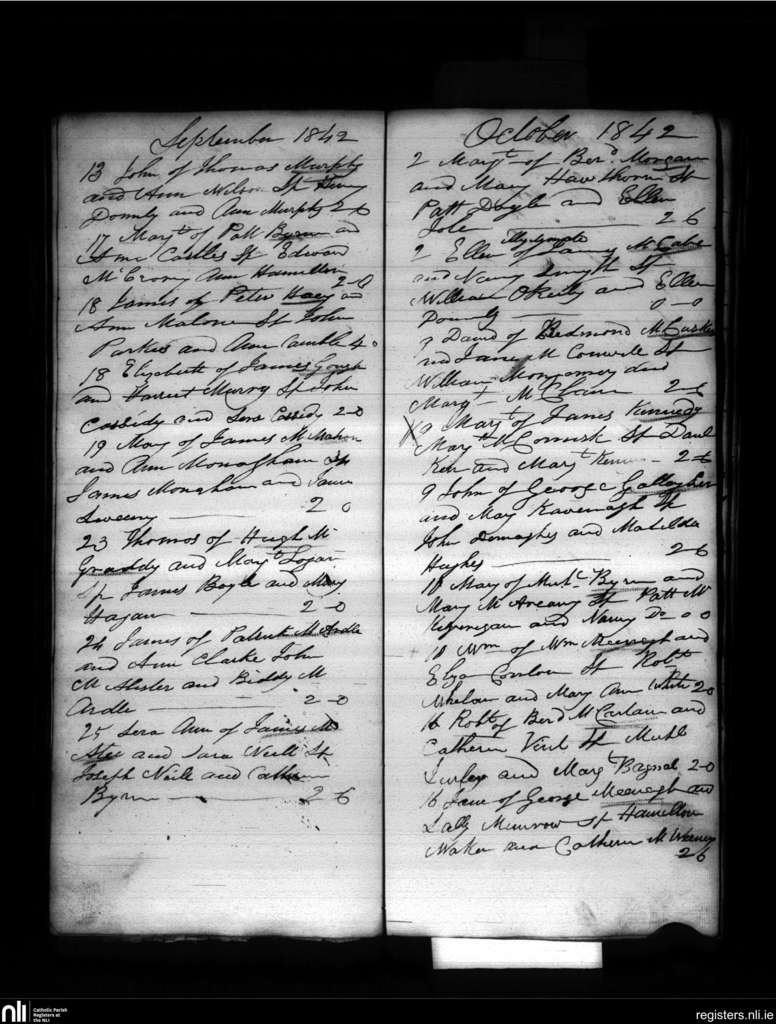 September 1842
13 John of Thomas Murphy
and Ann Wilson Sp Henry
Donnly and Ann Murphy 2-6
17 Margt of Patt Byrne an
Ann Castles Sp Edward
McCrony Ann Hamillton
2-0
18 James of Peter Hoey an
Ann Malone Sp John
Parkes and Ann Camble 4
18 Elizebeth of James Gough
and Harriet Murry Sp John
Cassidy and Sera Cassidy 2-0
19 Mary of James McMahon
and Ann Monagham Sp
James Monaham and Jane
Sweeny 2 0
23 Thomas of Hugh Mc
Graddy and Margt Logan
Sp James Boyle and Mary
Hagan 2-0
24 James of Patrick McArdle
and Ann Clarke John
McAlister and Biddy M
Ardle 2-0
25 Sera Ann of James Mc
Atee and Sara Neill Sp
Joseph Neill and Cathern
Byrne 2-6
October 1842
2 Margt of Berd Morgan
and Mary Hawthorn Sp
Patt Doyle and Ellen
2 6
Illegitimate
2 Ellen of McCabe
and Nancy Smyth Sp
William OReilly and Ellen
Donnly 0-0
9 David of Redmond McCusker
and Jane McConwell Sp
William Montgomery and
Margt 2-6
X 9 Margt of James Kennedy
Margt McCormisk Sp Danl
Kerr and Margt 2-6
9 John of George Gallagher
and Mary Kavenagh Sp
John Donaghey and Matilda
Hughes 2-6
10 Mary of Michl Byrne and
Mary McAreavy Sp Patt Mc
Kernegan and Nancy Do 0 0
10 Wm of Wm Meenegh and
Eliza Conlon Sp Robt
Whelan and Mary Ann White 2 0
16 Robt of Berd McConlan and
Catherin Vint Sp Michl
Turley and Margt Bagnal 2-0
16 Jane of George Meenegh and
Sally Munrow Sp Hamellton
Waker and Catherin McWeeney
2 6
nli
Catholic Parish
Registers at
the NLI
registers.nli.ie